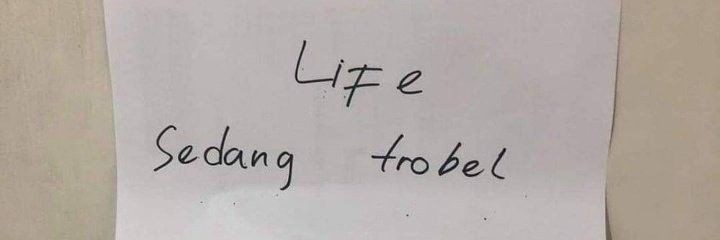 LiFe
Sedang trobel